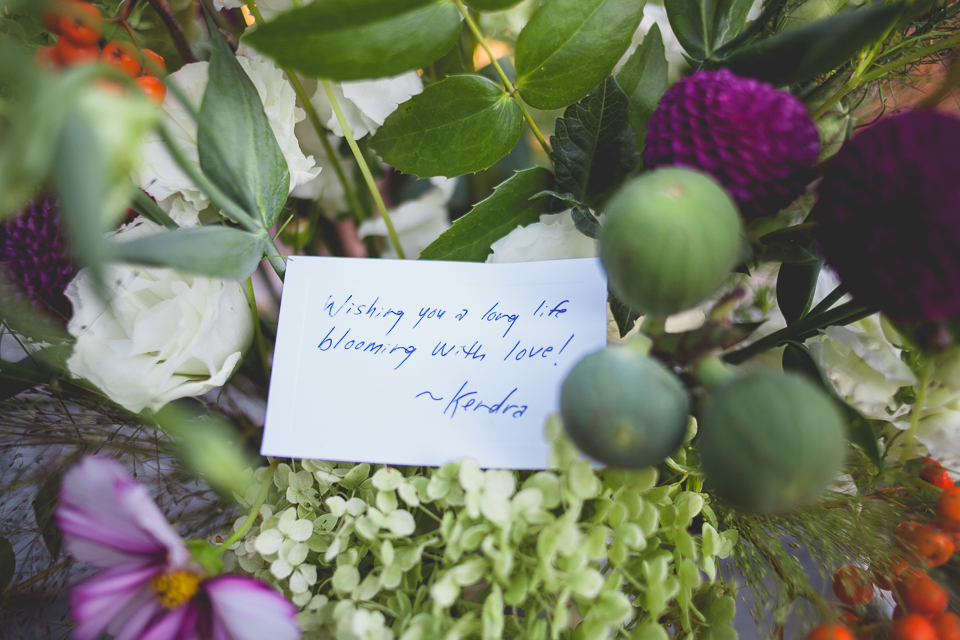 Wishing you a long life
blooming with love!
~Kendra